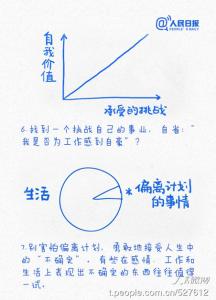 @人民日报
PEOPLE'S DAILY
自我价值
承受的挑战
6.找到一个挑战自己的事业,自省:"
我是否为工作感到自豪"?
生活
*偏离计划
的事情
7.别害怕偏离计划,勇敢地接受人生中
的"不确定",有些在感情、工作和
生活上表现出不确定的东西往往值得
一试。
人民网
t.people.com.cn/527612